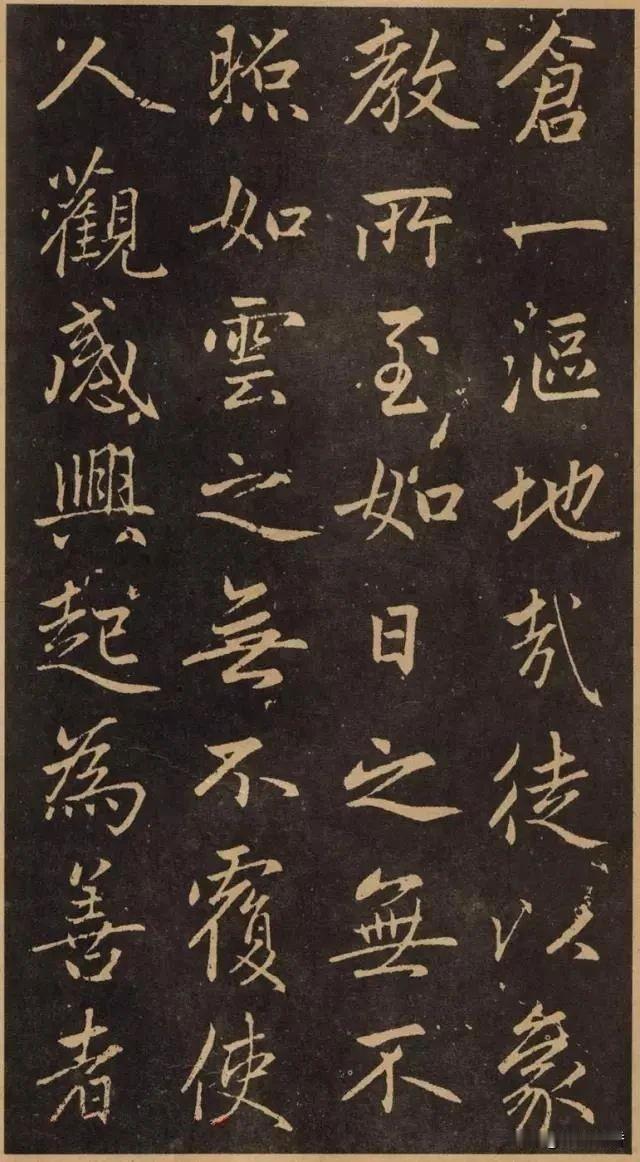 滄一漚地哉徒以象
教所至如日之無不
照如雲之無不覆使
人觀感興起為善者